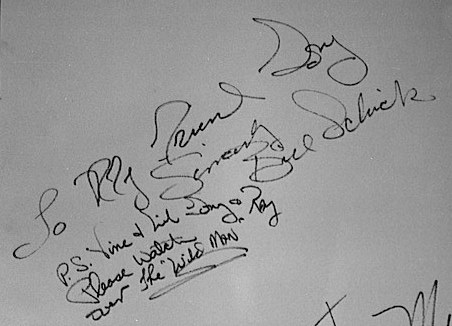 To My Friend Tony
Sincerely
Bill Schick
P.S. Vine & Lil Tony & Ray
Please Watch
over The "Wild MAN"